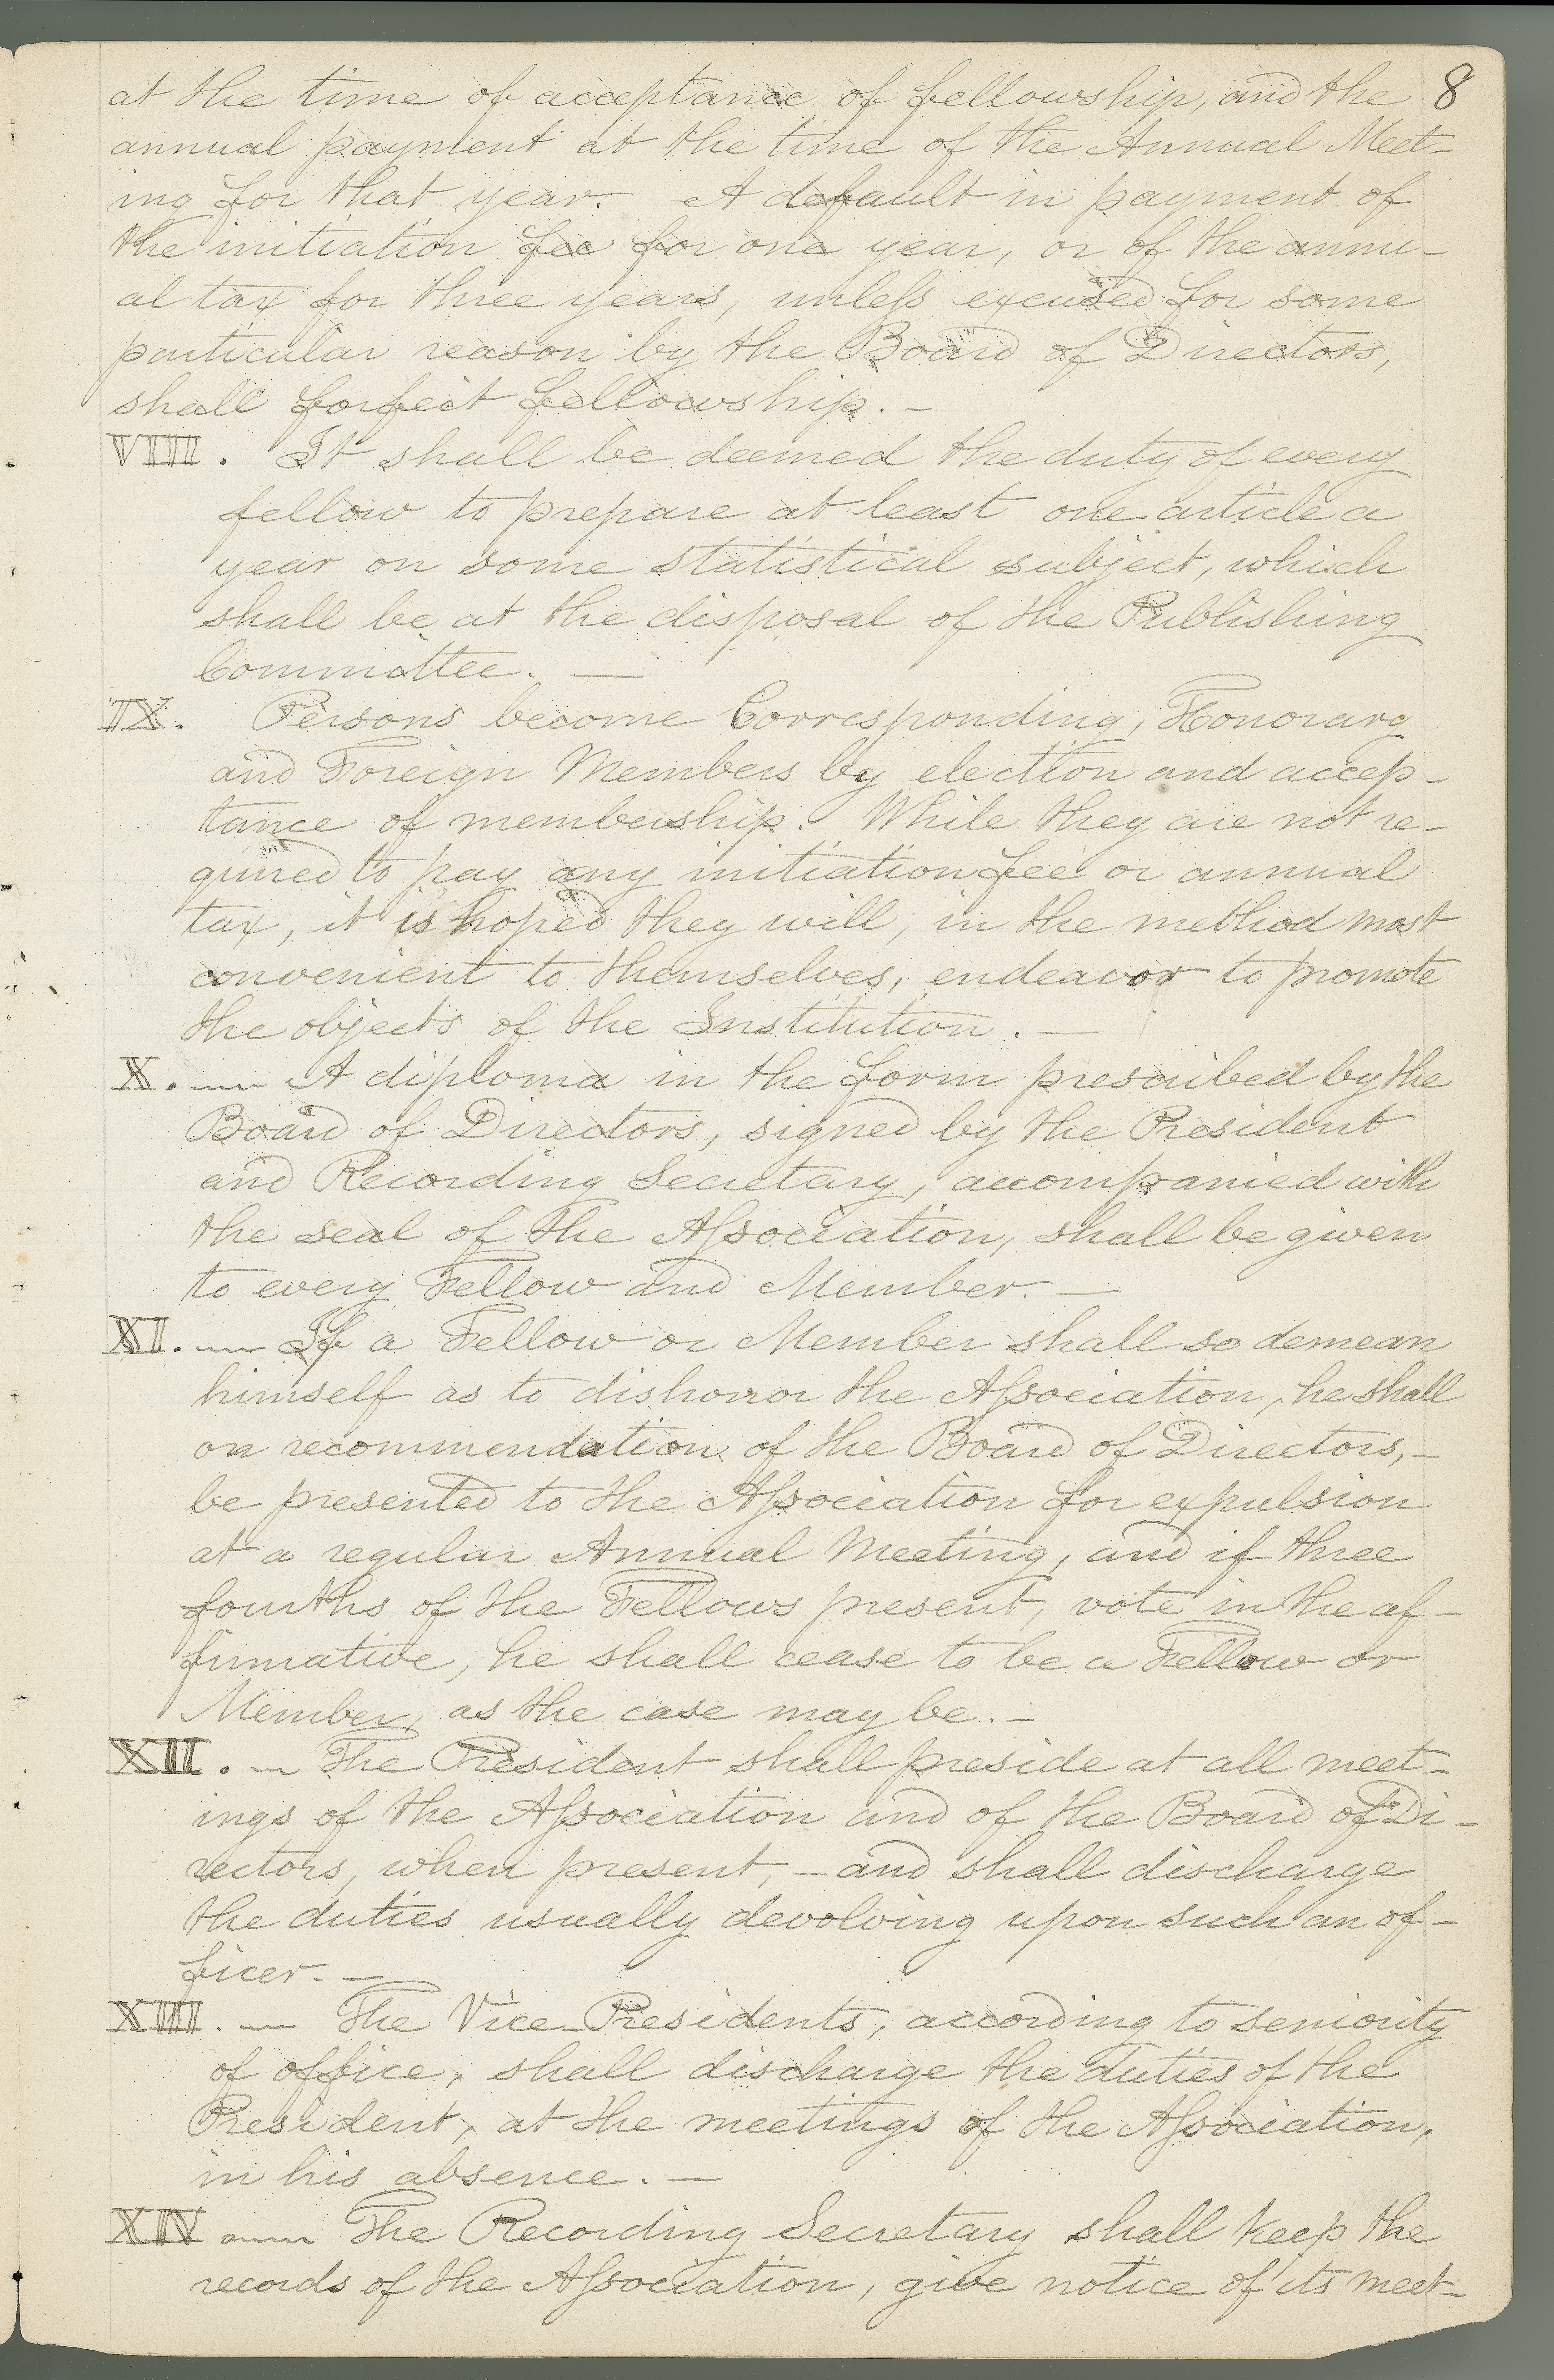 at the time of acceptance of fellowship, and the 8
annual payment at the time of the Annual Meet-
ing for that year. A default in payment of
the initiation fee for one year, or of the annu-
al tax for three years, unless excused for some
particular reason by the Board of Directors,
shall forfeit fellowship. -
VIII. It shall be deemed the duty of every
fellow to prepare at least one article a
year on some statistical subject, which
shall be at the disposal of the Publishing
Committee. —
IX. Persons become Corresponding, Honorary
and Foreign Members by election and accep-
tance of membership. While they are not re-
quired to pay any initiation fee or annual
tax, it is hoped they will, in the method most
convenient to themselves, endeavor to promote
the objects of the Institution. —
X. A diploma in the form prescribed by the
Board of Directors, signed by the President
and Recording Secretary, accompanied with
the seal of the Association, shall be given
to every Fellow and Member. —
XI. If a Fellow or Member shall so demean
himself as to dishonor the Association, he shall
on recommendation of the Board of Directors, -
be presented to the Association for expulsion
at a regular Annual Meeting, and if three
fourths of the Fellows present, vote in the af-
firmative, he shall cease to be a Fellow or
Member, as the case may be. -
XII. The President shall preside at all meet-
ings of the Association and of the Board of Di-
rectors, when present, - and shall discharge
the duties usually devolving upon such an of-
ficer. -
XIII. The Vice-Presidents, according to seniority
of office, shall discharge the duties of the
President, at the meetings of the Association,
in his absence. —
XIV The Recording Secretary shall keep the
records of the Association, give notice of its meet-